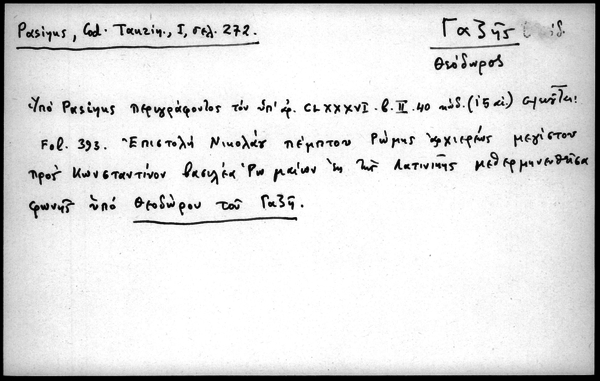 Pasinus, Cod. Taurin., I, σελ. 272.
Γαζῆς
Θεόδωρος
Ὑπὸ Pasinus περιγράφοντος τὸν ὑπ' ἀρ. CLXXXVI. b. II. 40 κώδ. (ις αἰ.)
Fol. 393. Ἐπιστολὴ Νικολάου πέμπτου Ῥώμης ἀρχιερέως μεγίστου
πρὸς Κωνσταντῖνον βασιλέα Ῥωμαίων ἐκ τῆς Λατινικῆς μεθερμηνευθεῖσα
φωνῆς ὑπὸ Θεοδώρου τοῦ Γαζῆ.